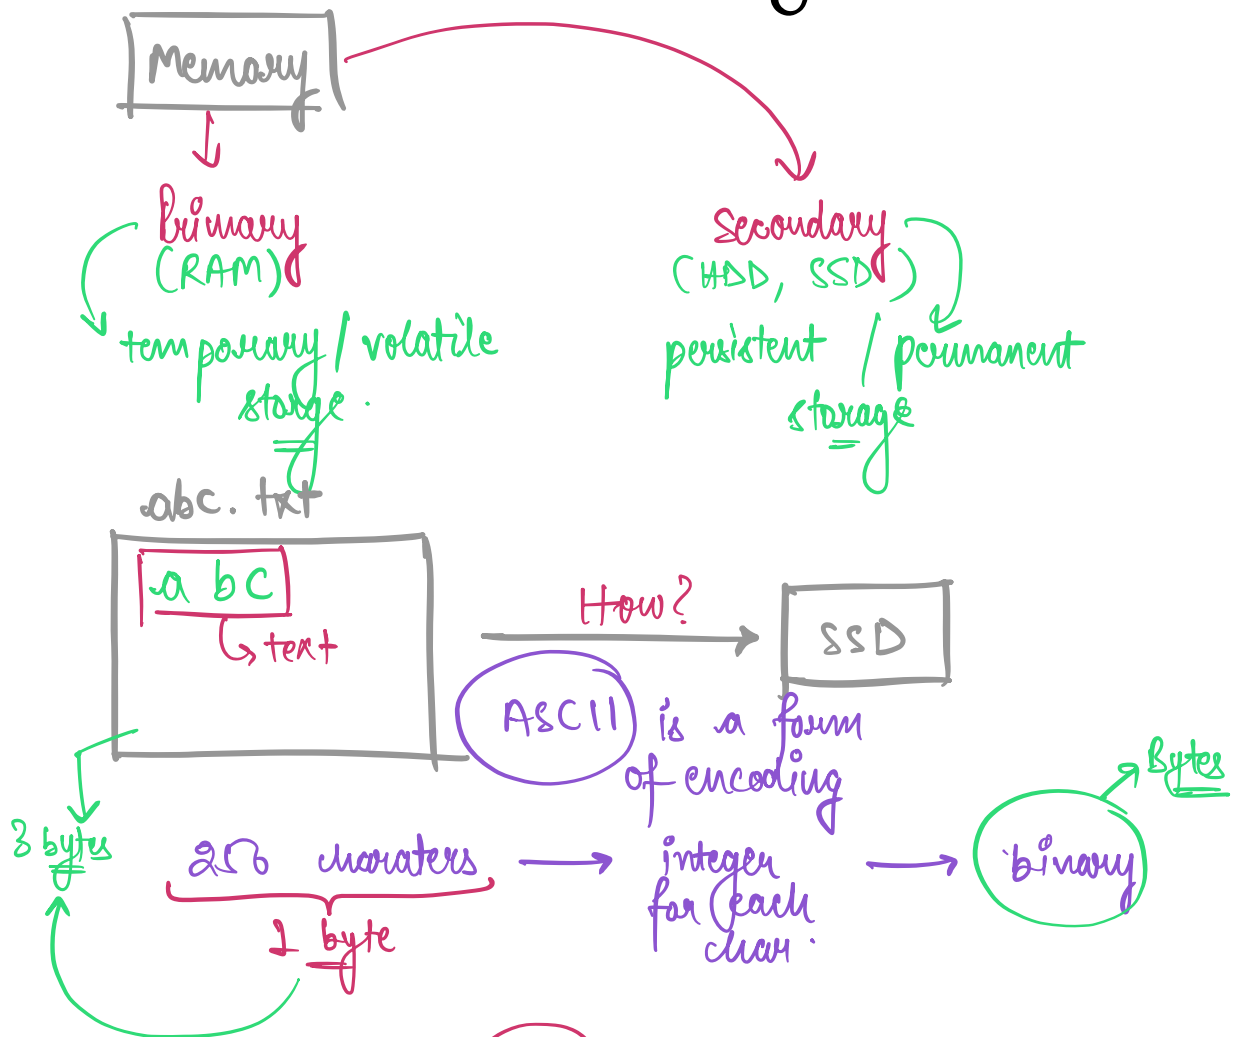 Memory
Primary
(RAM)
temporary / volatile
storge.
secondary
(HDD, SSD)
persistent / permanent
storage
abc.txt
a b c
text
How?
SSD
ASCII is a form
of encoding
3 bytes
256 charaters
1 byte
integer
for each
char.
binary
Bytes